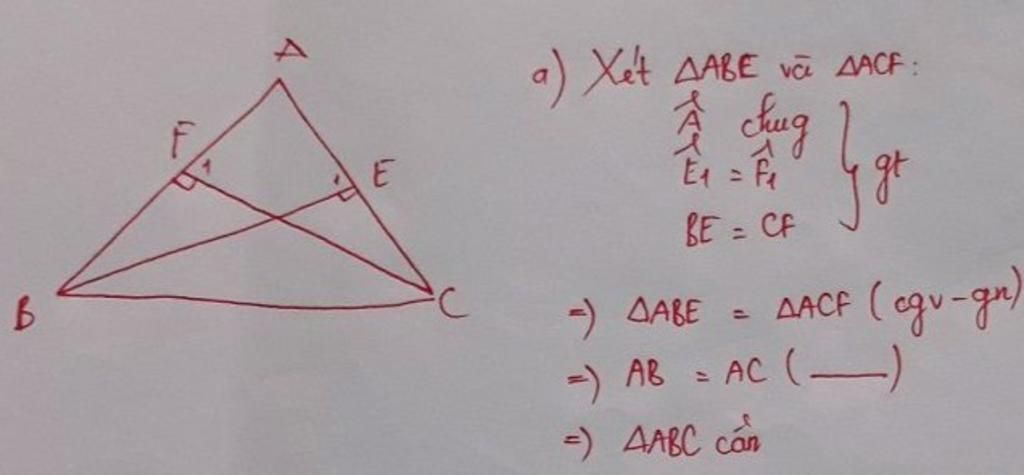 A
F
1
1
E
B
C
a) Xét ΔABE và ΔACF:
Â chung
Ê1 = F̂1
BE = CF
} gt
=) ΔABE = ΔACF (cgv - gn)
=) AB = AC (___)
=) ΔABC cân